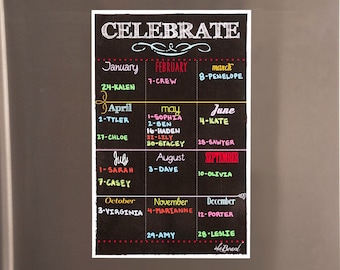 CELEBRATE
January
24-KALEN
FEBRUARY
7-CREW
march
8-PENELOPE
April
2-TYLER
27-CHLOE
may
1-SOPHIA
2-BEN
16-HADEN
22-LILY
30-STACEY
June
4-KATE
28-SAWYER
July
1-SARAH
7-CASEY
August
3-DAVE
SEPTEMBER
10-OLIVIA
October
3-VIRGINIA
November
4-MARIANNE
29-AMY
December
12-PORTER
28-LESLIE